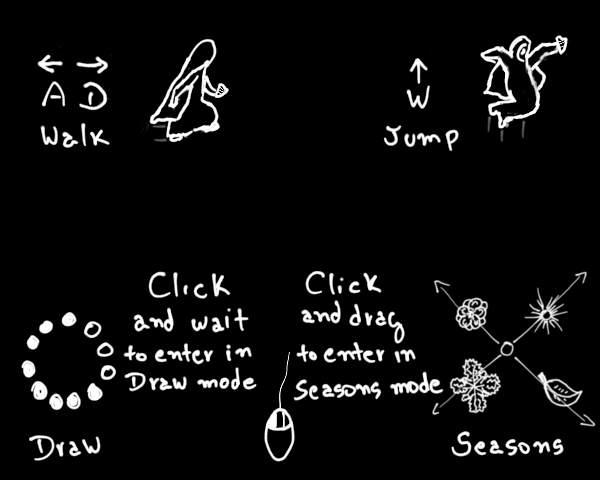 ← →
A D
Walk
↑
W
Jump
Click
and wait
to enter in
Draw mode
Click
and drag
to enter in
Seasons mode
Draw
Seasons